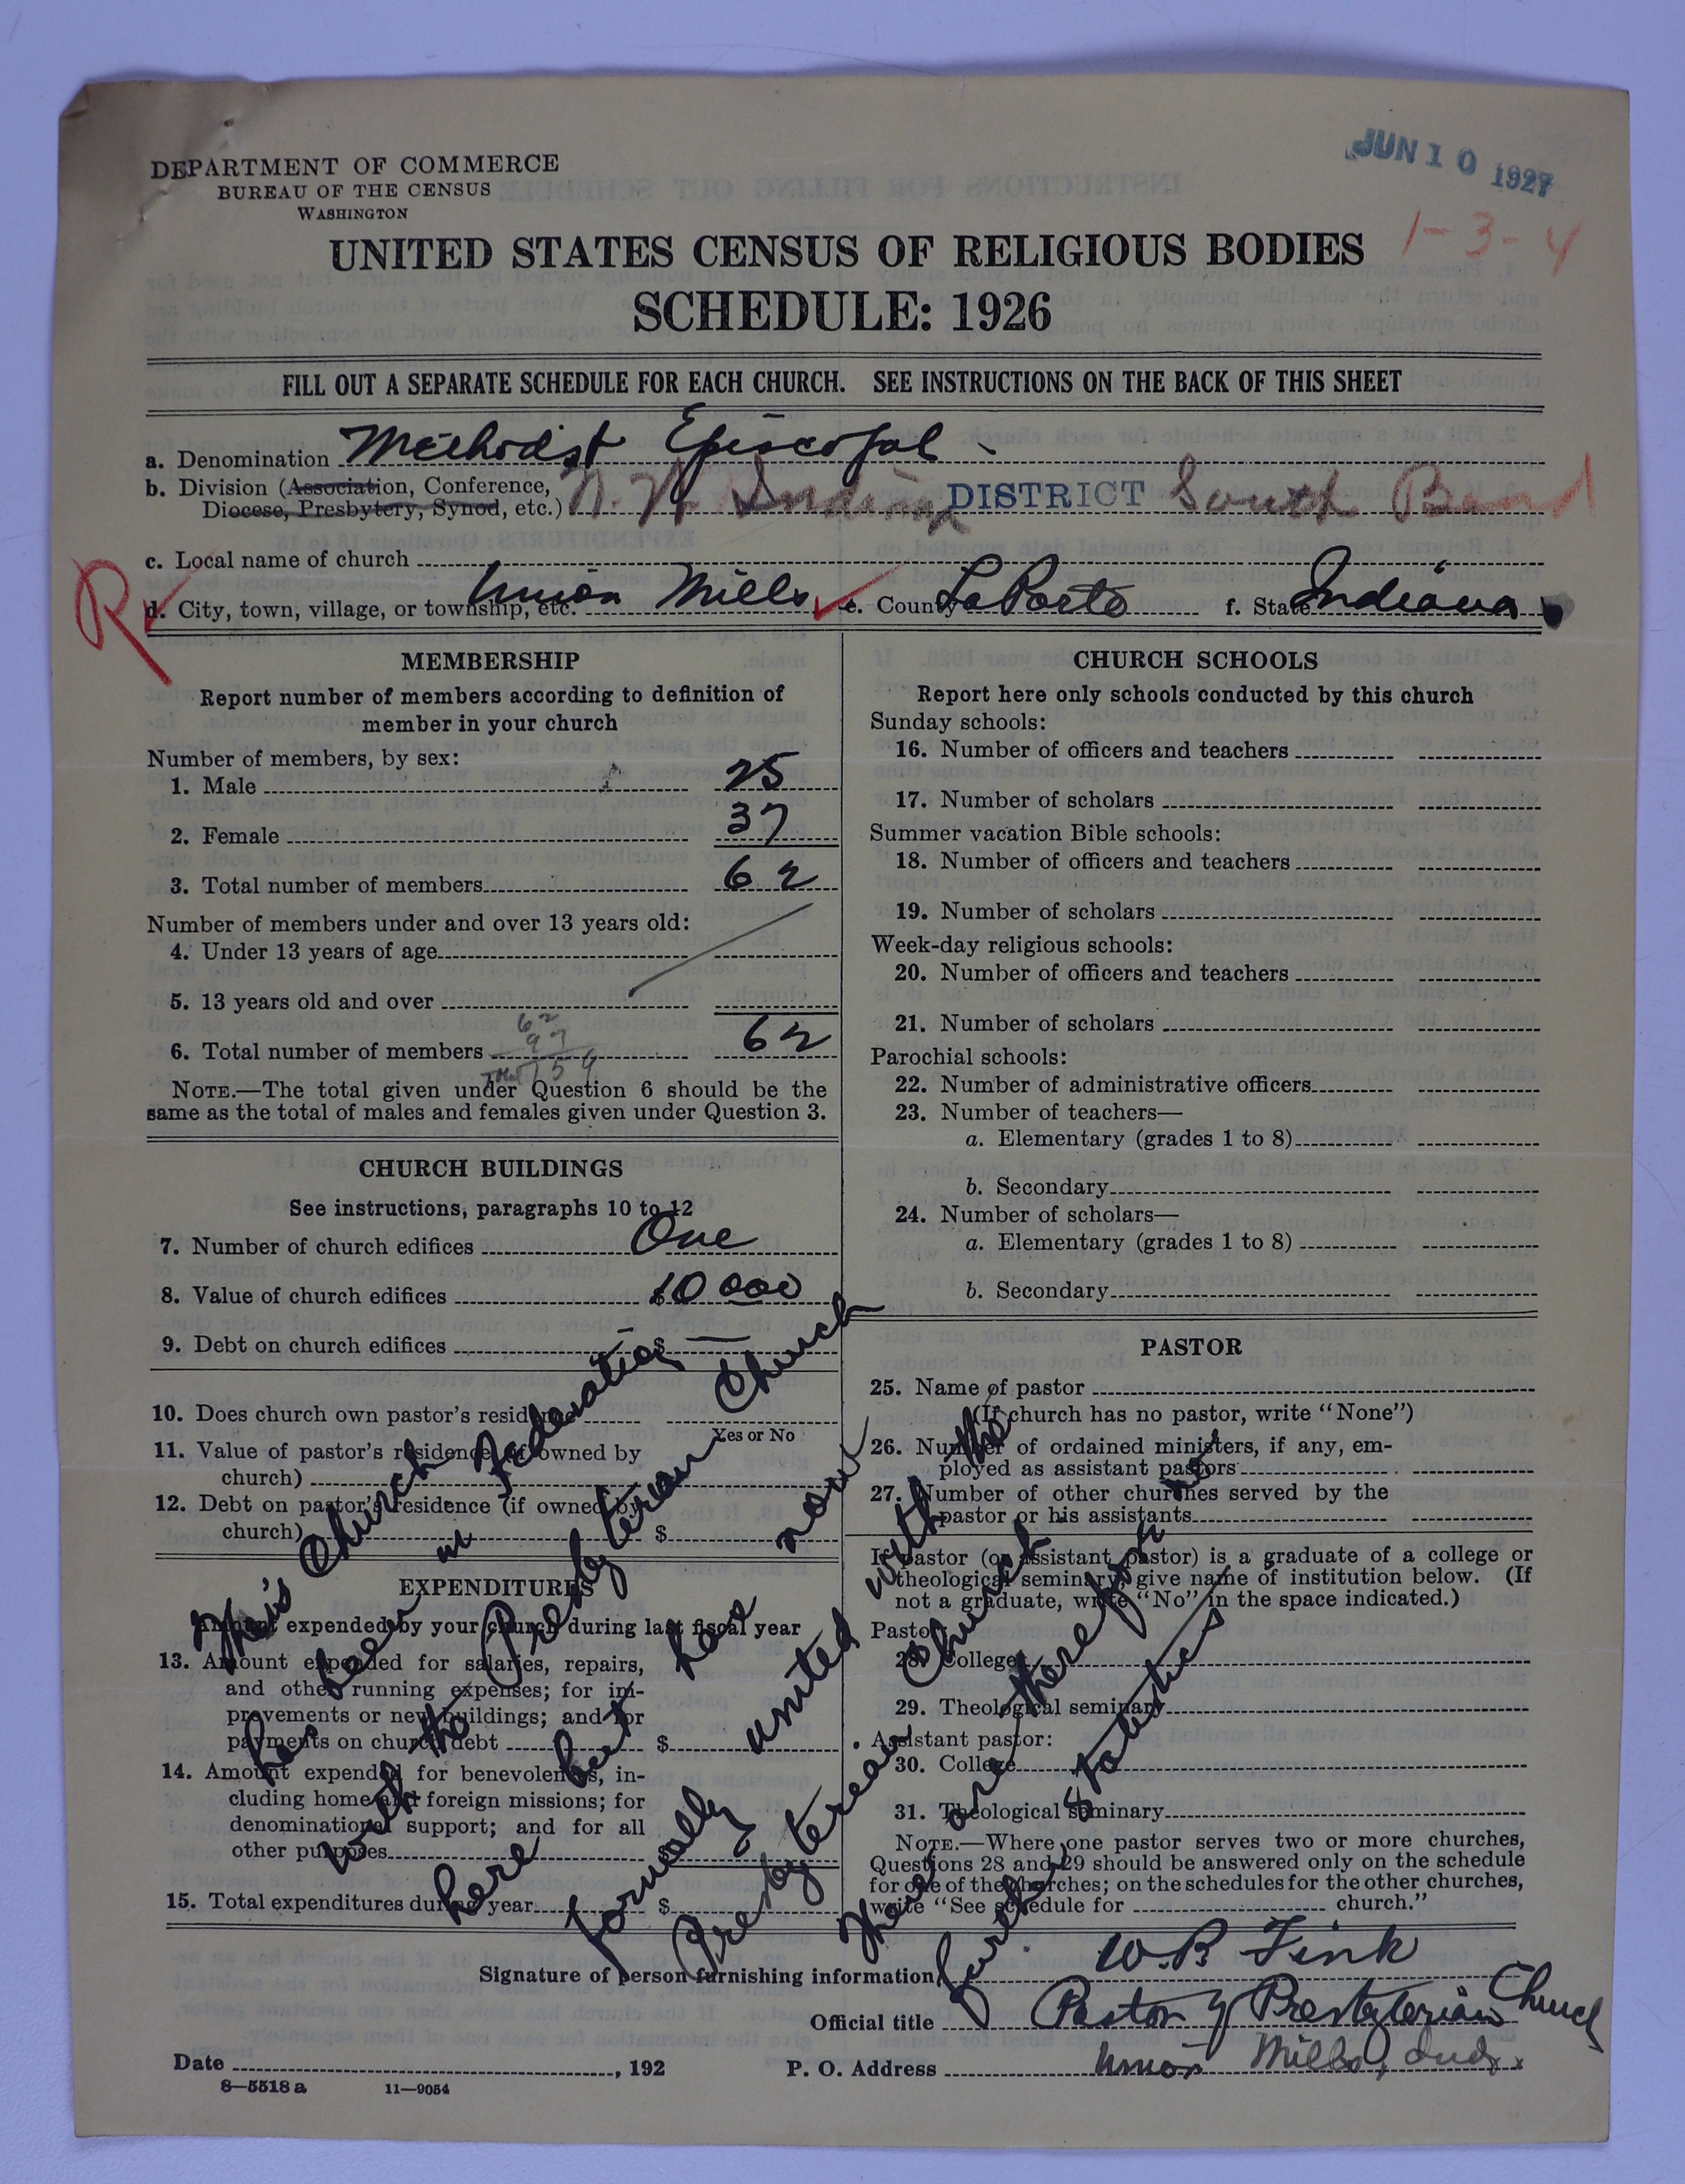 JUN 10 1927
1-3-4
DEPARTMENT OF COMMERCE
BUREAU OF THE CENSUS
WASHINGTON
UNITED STATES CENSUS OF RELIGIOUS BODIES
SCHEDULE: 1926
FILL OUT A SEPARATE SCHEDULE FOR EACH CHURCH. SEE INSTRUCTIONS ON THE BACK OF THIS SHEET
a. Denomination Methodist Episcopal
b. Division (Association, Conference, Diocese, Presbytery, Synod, etc.) N. W. Indiana DISTRICT South Bend
c. Local name of church
R
d. City, town, village, or township, etc. Union Mills e. County LaPorte f. State Indiana
MEMBERSHIP
Report number of members according to definition of
member in your church
Number of members, by sex:
1. Male 25
2. Female 37
3. Total number of members 62
Number of members under and over 13 years old:
4. Under 13 years of age
5. 13 years old and over
6. Total number of members 62
62
97
Total 159
NOTE.—The total given under Question 6 should be the
same as the total of males and females given under Question 3.
CHURCH BUILDINGS
See instructions, paragraphs 10 to 12
7. Number of church edifices One
8. Value of church edifices $10 000
9. Debt on church edifices $ —
10. Does church own pastor's residence
Yes or No
11. Value of pastor's residence (if owned by
church)
12. Debt on pastor's residence (if owned by
church) $
EXPENDITURES
Amount expended by your church during last fiscal year
13. Amount expended for salaries, repairs,
and other running expenses; for im-
provements or new buildings; and for
payments on church debt $
14. Amount expended for benevolences, in-
cluding home and foreign missions; for
denominational support; and for all
other purposes
15. Total expenditures during year $
This Church
has been in Federation
with the Presbyterian Church
here but have now
formally united with the
Presbyterian Church
There are therefore no
further statistics
CHURCH SCHOOLS
Report here only schools conducted by this church
Sunday schools:
16. Number of officers and teachers
17. Number of scholars
Summer vacation Bible schools:
18. Number of officers and teachers
19. Number of scholars
Week-day religious schools:
20. Number of officers and teachers
21. Number of scholars
Parochial schools:
22. Number of administrative officers
23. Number of teachers—
a. Elementary (grades 1 to 8)
b. Secondary
24. Number of scholars—
a. Elementary (grades 1 to 8)
b. Secondary
PASTOR
25. Name of pastor
(If church has no pastor, write "None")
26. Number of ordained ministers, if any, em-
ployed as assistant pastors
27. Number of other churches served by the
pastor or his assistants
If pastor (or assistant pastor) is a graduate of a college or
theological seminary, give name of institution below. (If
not a graduate, write "No" in the space indicated.)
Pastor:
28. College
29. Theological seminary
Assistant pastor:
30. College
31. Theological seminary
NOTE.—Where one pastor serves two or more churches,
Questions 28 and 29 should be answered only on the schedule
for one of the churches; on the schedules for the other churches,
write "See schedule for church."
Signature of person furnishing information W. B. Fink
Official title Pastor of Presbyterian Church
Date , 192 P. O. Address Union Mills, Ind.
8—5518 a 11—9054